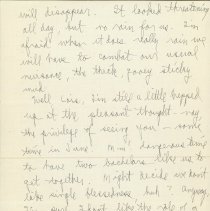 will disappear. It looked threatening
all day, but no rain for us. I'm
afraid when it does rally rain we
will have to combat our usual
nuisance, the thick gooey sticky
mud.
Well Cois, I'm still a little hepped
up at the pleasant thought - nay
the privilege of seeing you - some
time in June! M-m, dangerous time
to have two bachelors like us to
get together. Might decide we don't
like single blessedness huh? Anyway
I'm sure I don't like the role of a